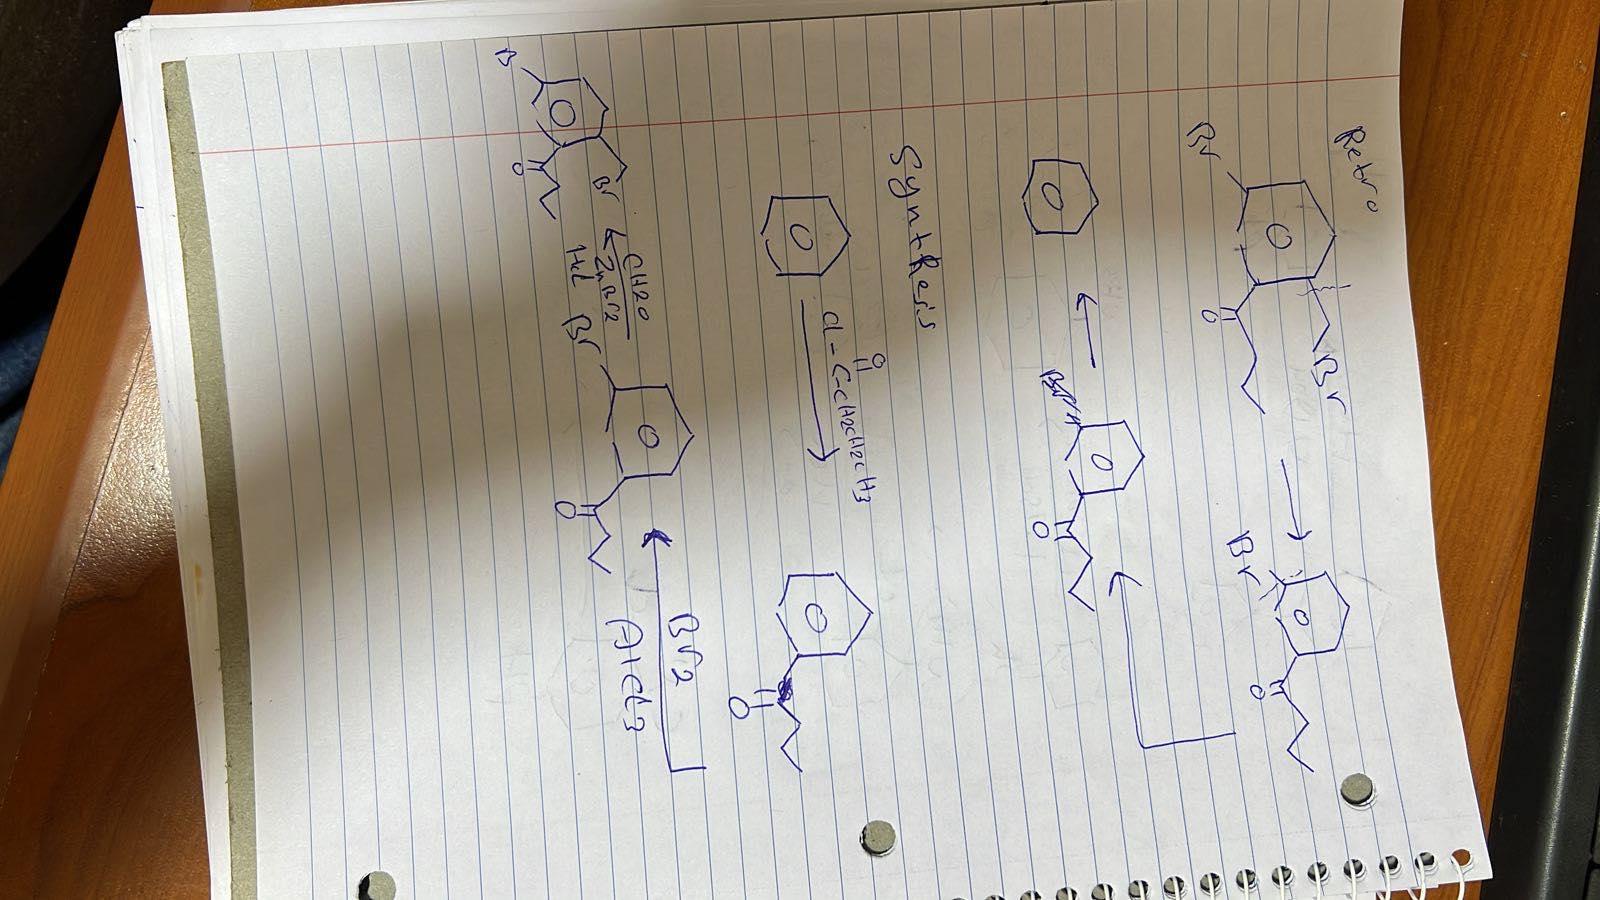 Retro
Br
Br
O
Br
O
O
Synthesis
O
Cl-C-CH2CH2CH3
O
Br2
AlCl3
Br
O
CH2O
ZnBr2
HCl
Br
O